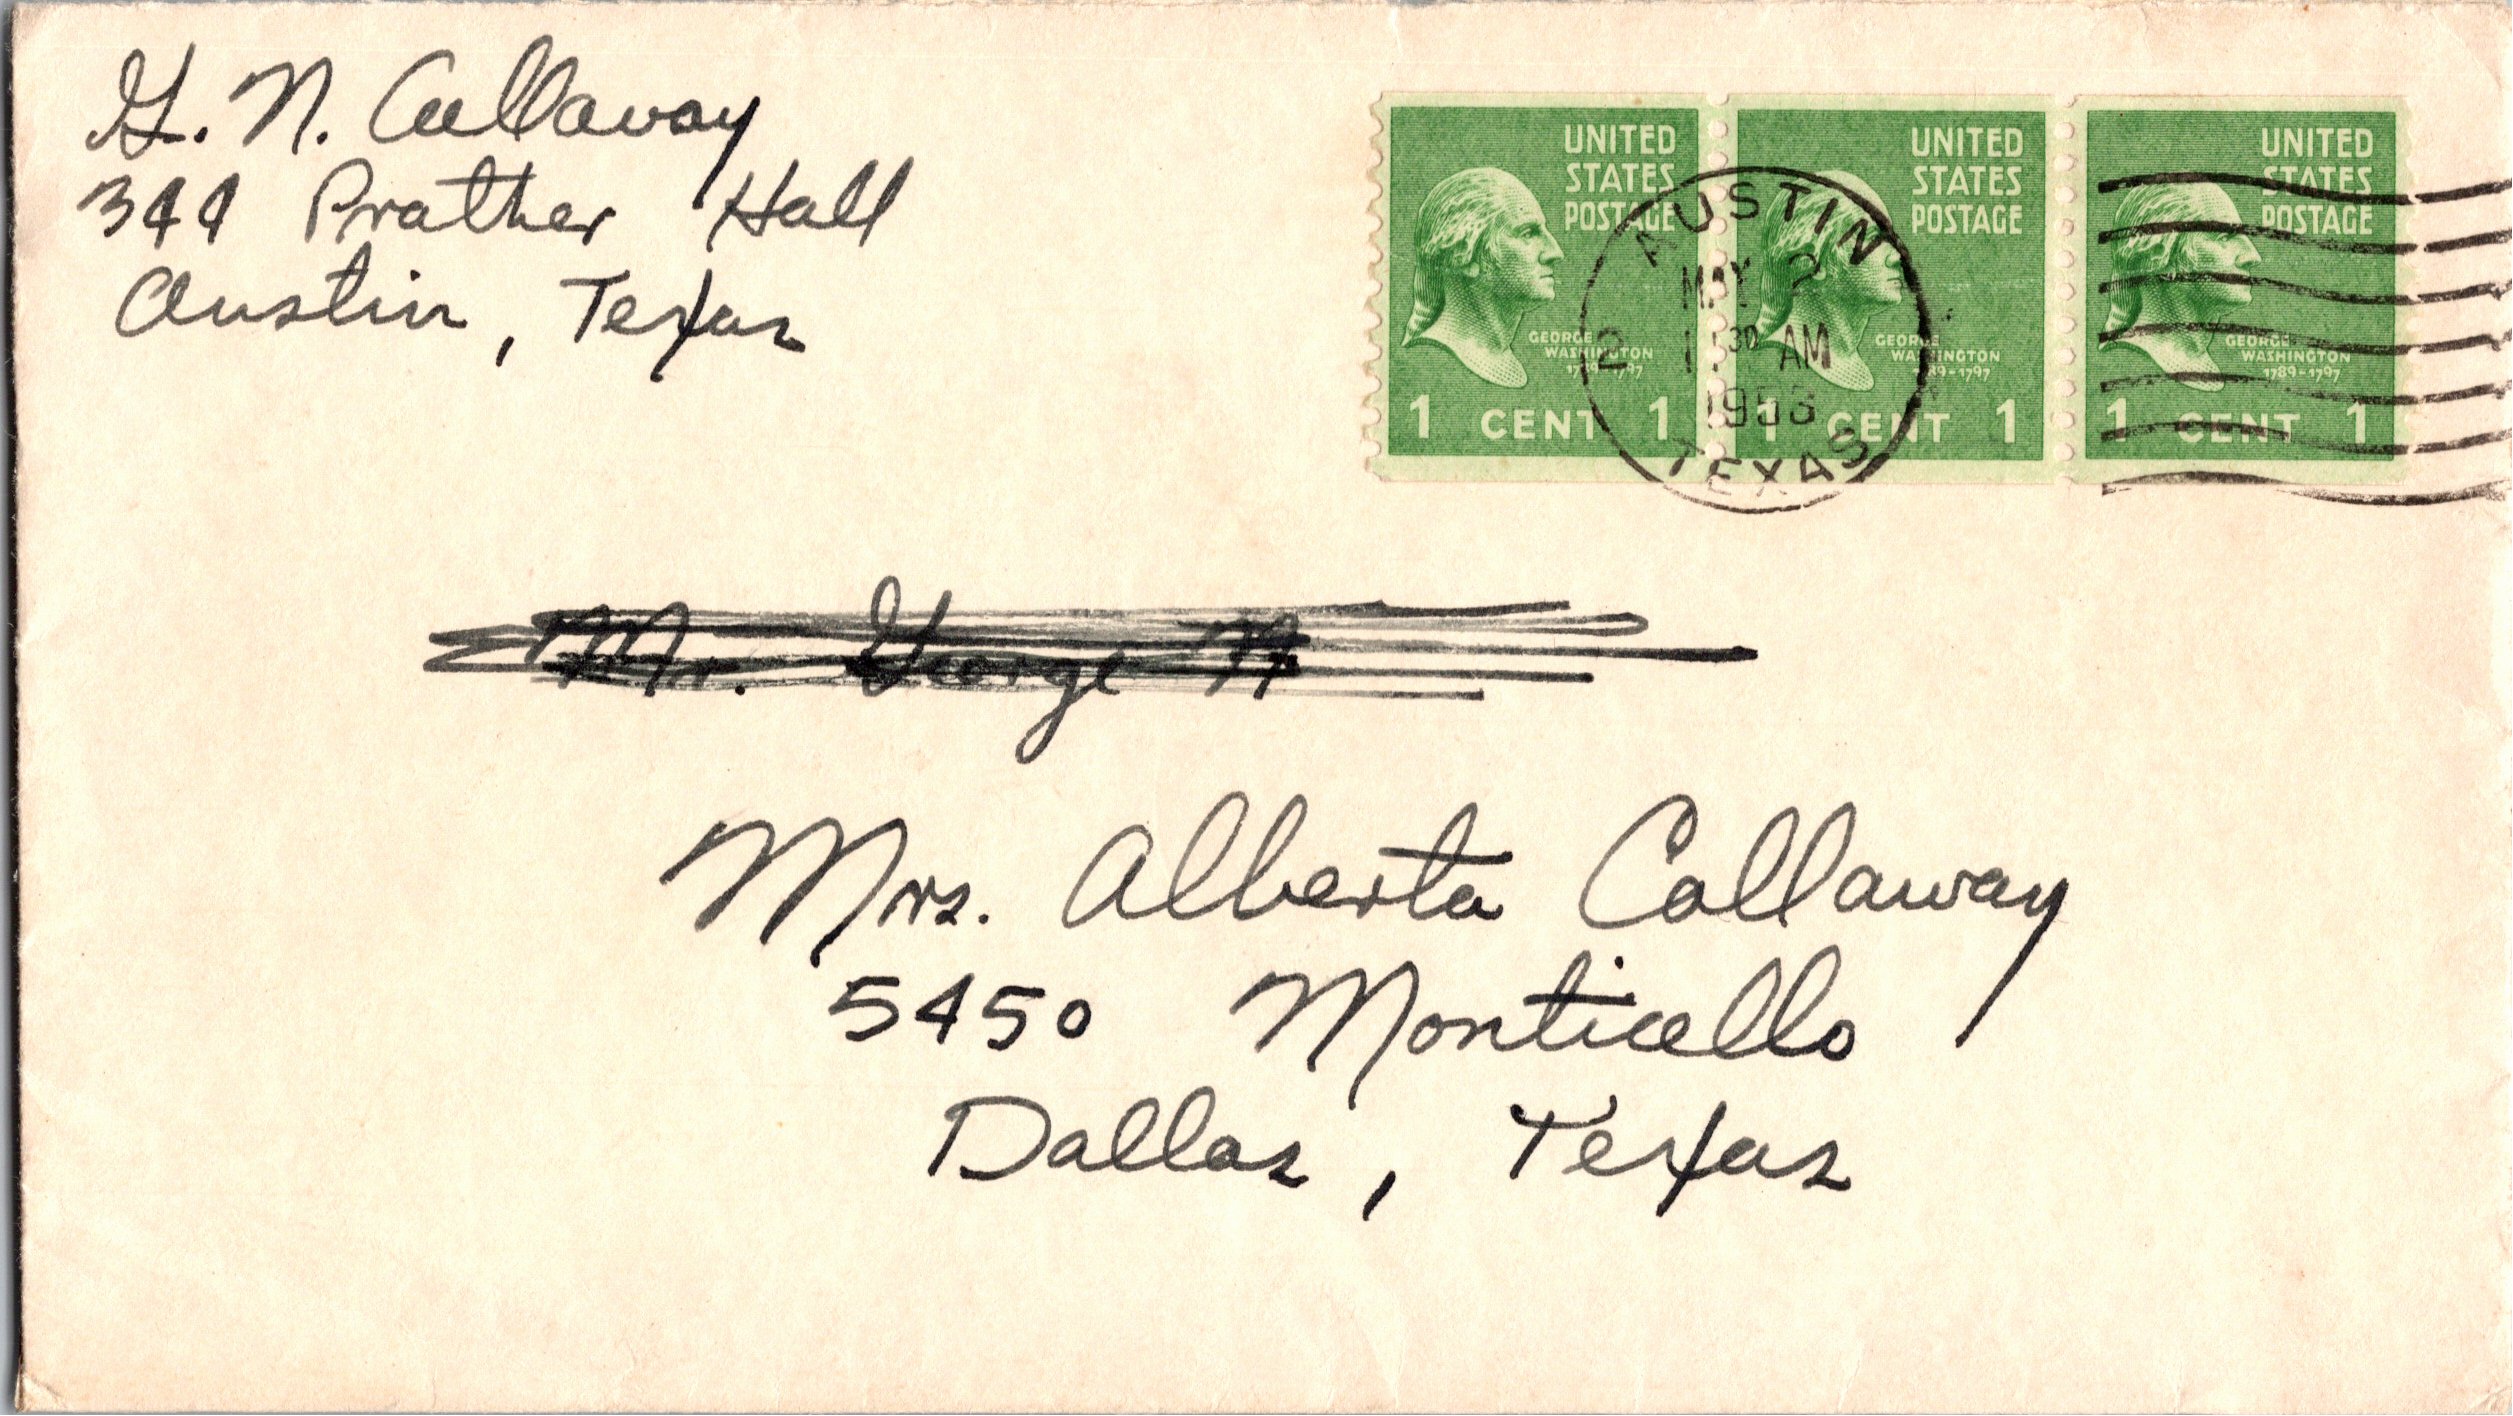 G. N. Callaway
344 Prather Hall
Austin, Texas
UNITED STATES POSTAGE
GEORGE WASHINGTON
1789-1797
1 CENT 1
UNITED STATES POSTAGE
GEORGE WASHINGTON
1789-1797
1 CENT 1
UNITED STATES POSTAGE
GEORGE WASHINGTON
1789-1797
1 CENT 1
AUSTIN
MAY 2
30 AM
TEXAS
Mr. George N
Mrs. Alberta Callaway
5450 Monticello
Dallas, Texas